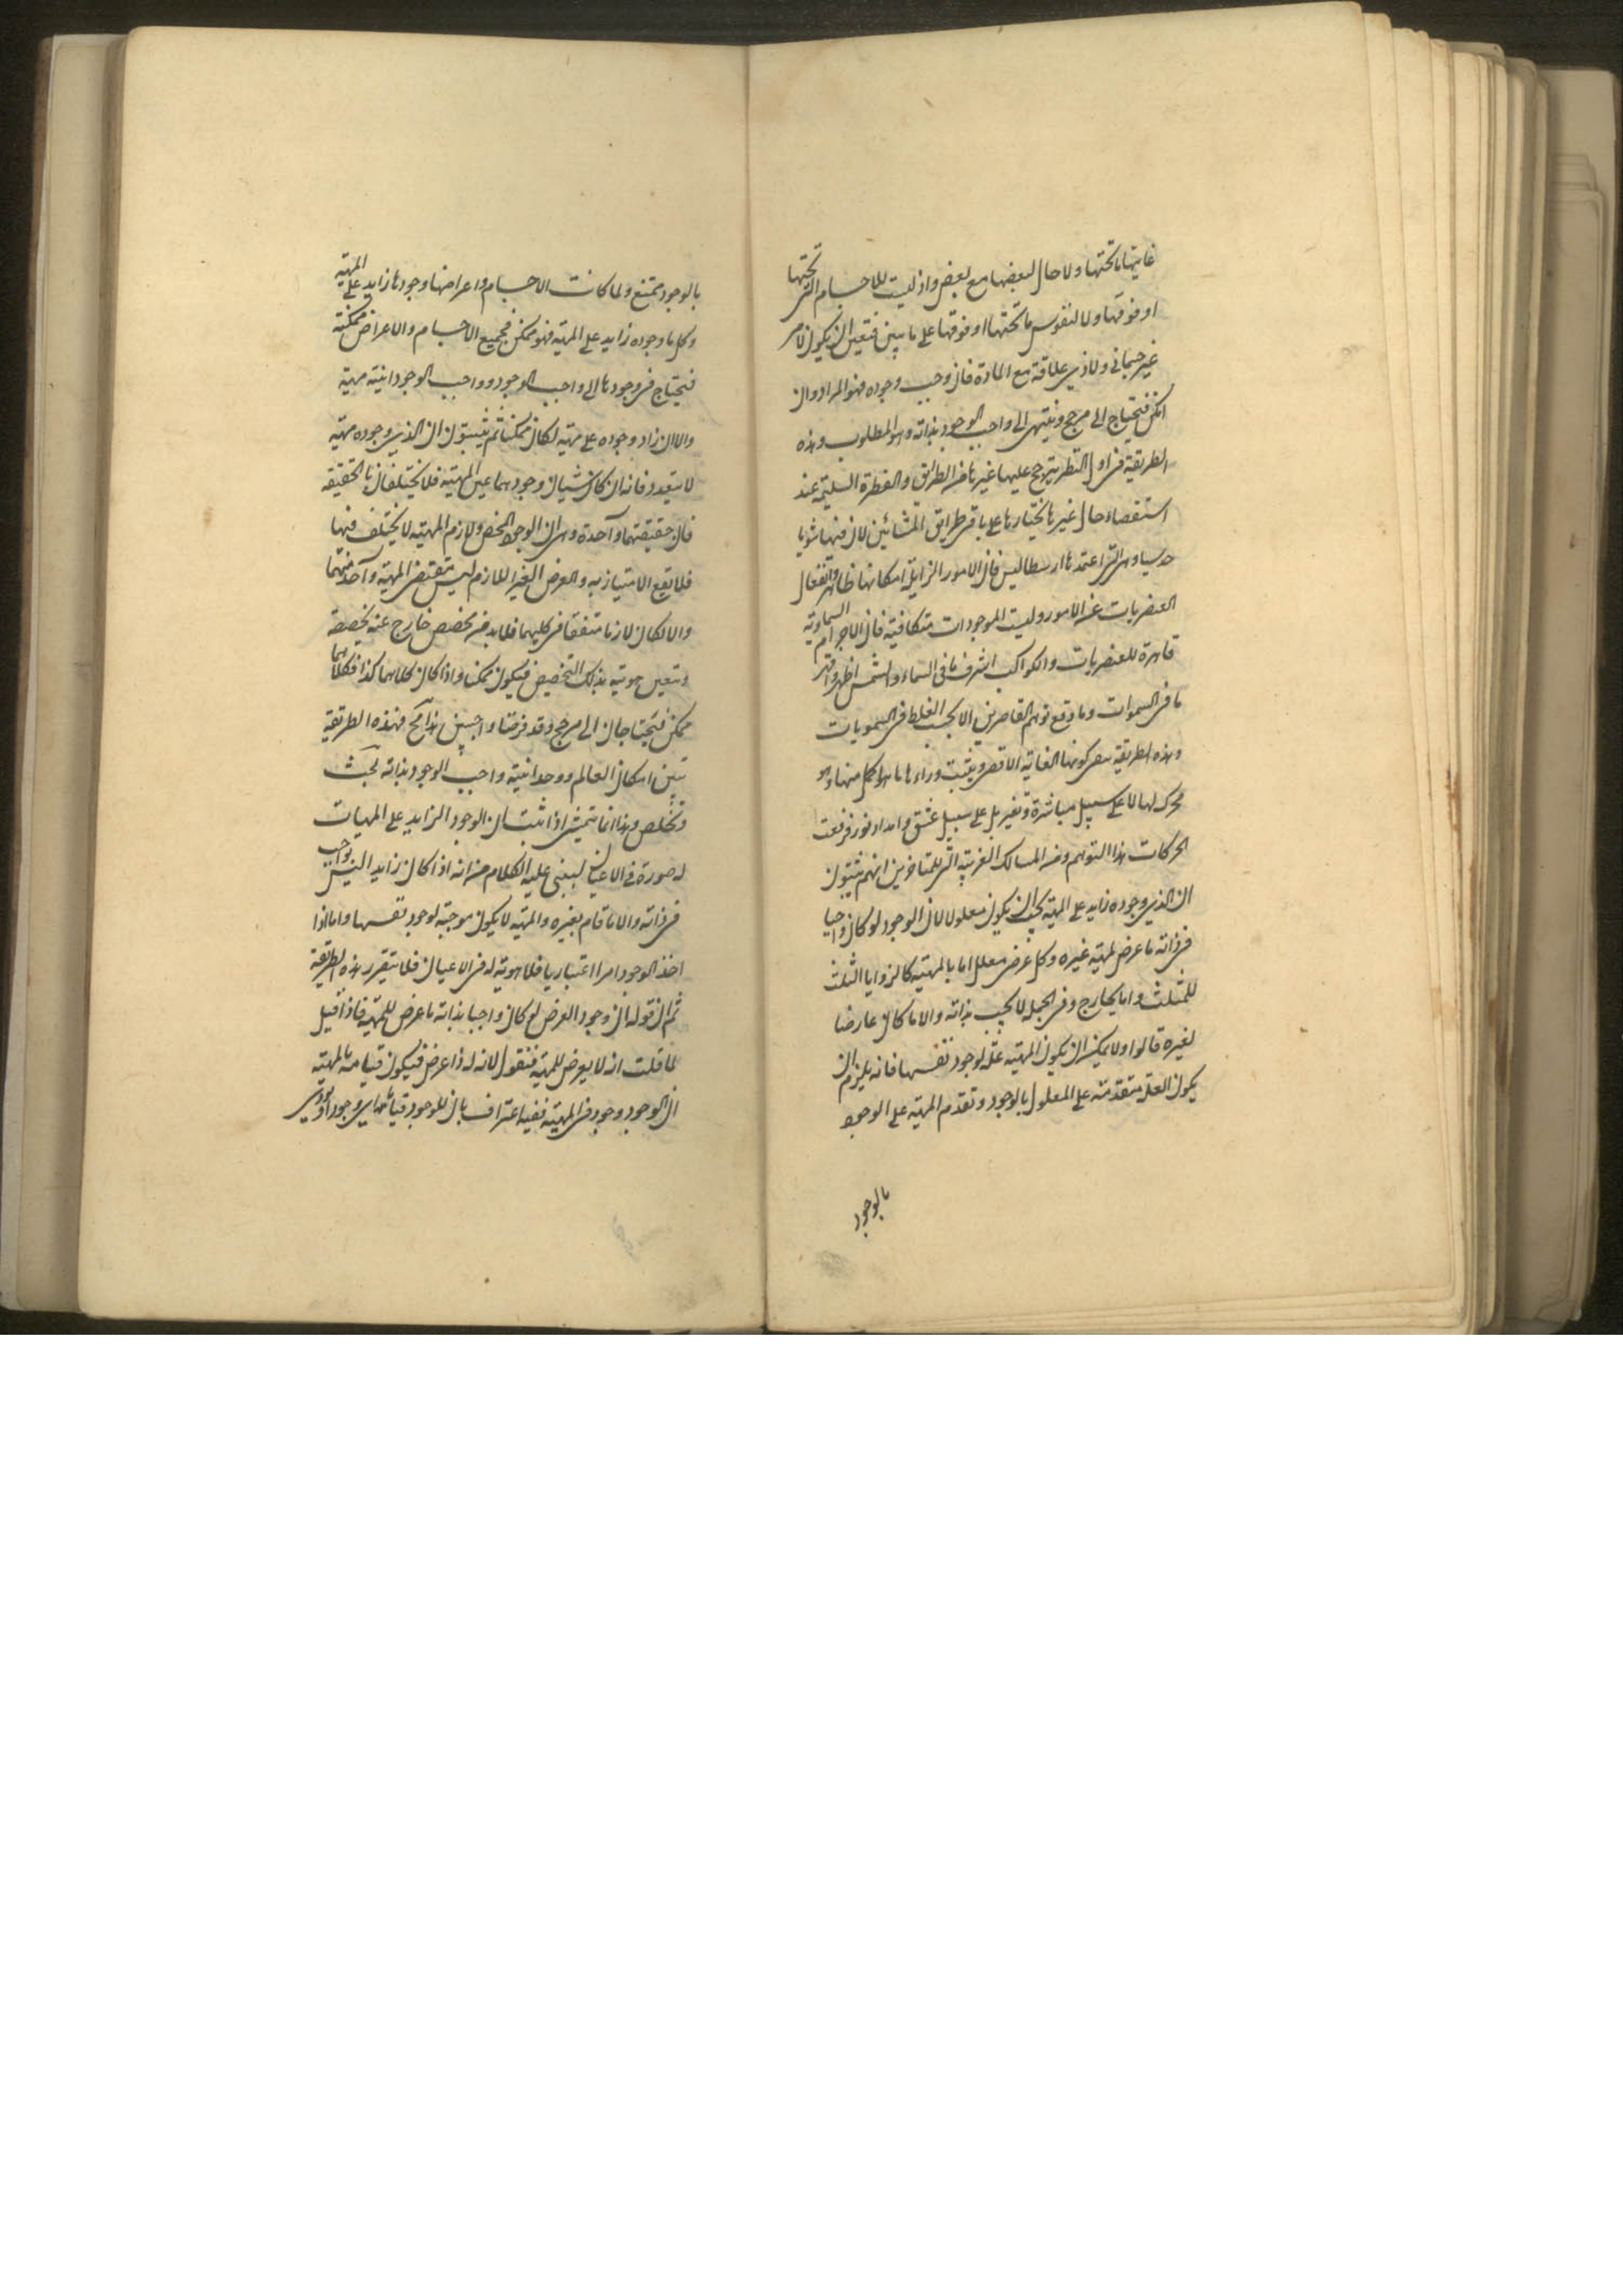 غايتها ما تحتها ولا حال لبعضها مع بعض واذ ليست للاجسام التى تحتها
او فوقها ولا لنفوس ما تحتها او فوقها على ما يبين فتعين ان يكون لامر
غير جسمانى ولا ذى علاقة مع المادة فان وجب وجوده فهو المراد وان
امكن فيحتاج الى مرجح وينتهى الى واجب الوجود بذاته وهو المطلوب وهذه
الطريقة فى اول النظر يترجح عليها غيرها من الطرائق والفطرة السليمة عند
استقصاء حال غيرها يختارها على باقى طرايق المشائين لان فيها شوبا
حدسيا وهى التى اعتمدها ارسطاليس فان الامور الزايلة امكانها ظاهر وانفعال
العنصريات عن الامور وليست الموجودات متكافية فان الاجرام السماوية
قاهرة للعنصريات والكواكب اشرف ما فى السماء والشمس اظهر واقهر
ما فى السموات وما وقع توهم القاصرين الا بحسب الغلط فى السمويات
وهذه الطريقة كونها الغاية الاقصى ويثبت وراءها ما هو اكمل منها وهو
محرك لها لا على سبيل مباشرة وتغير بل على سبيل عشق وامداد نور فرفعت
الحركات هذا التوهم ومن المسالك الغريبة التى للمتاخرين انهم يثبتون
ان الذى وجوده زايد على المهية يجب ان يكون معلولا لان الوجود لو كان واجبا
فى ذاته ما عرض لمهية غيره وكل عرض معلل اما بالمهية كالزوايا الثلث
للمثلث واما بخارج وفى الجملة لا يجب بذاته والا ما كان عارضا
لغيره قالوا ولا يمكن ان يكون المهية علة لوجود نفسها فانه يلزم ان
يكون العلة متقدمة على المعلول بالوجود وتقدم المهية على الوجود
بالوجود
بالوجود ممتنع ولما كانت الاجسام واعراضها وجودها زايد على المهية
وكل ما وجوده زايد على المهية فهو ممكن فجميع الاجسام والاعراض ممكنة
فيحتاج فى وجودها الى واجب الوجود وواجب الوجود انيته مهية
والا ان زاد وجوده على مهية لكان ممكنا ثم يثبتون ان الذى وجوده مهية
لا يتعدد فانه ان كان شيان وجودهما عين المهية فلا يختلفان بالحقيقة
فان حقيقتهما واحدة وهى ان الوجود المحض ولازم المهية لا يختلف فيها
فلا يقع الامتياز به والعرض الغير اللازم ليس بمقتضى المهية واحد منهما
والا لكان لازما متفقا فى كليهما فلا بد من مخصص خارج عنه يخصصه
ويتعين هويته بذلك التخصيص فيكون ممكنا واذا كان كلاهما كذا فكلاهما
ممكن فيحتاجان الى مرجح وقد فرضنا واجبين هذا مح فهذه الطريقة
تبين امكان العالم ووحدانية واجب الوجود بذاته بحث
وتخلص وهذا انما يتمشى اذا ثبت ان الوجود الزايد على المهيات
له صورة فى الاعيان ليبنى عليه الكلام من انه اذا كان زايد اليس بواجب
فى ذاته والا ما قام بغيره والمهية لا يكون موجبة لوجود نفسها واما اذا
اخذ الوجود امرا اعتباريا فلا هوية له فى الاعيان فلا يتقرر هذه الطريقة
ثم ان قوله ان وجود العرض لو كان واجبا بذاته ما عرض للمهية فاذا قيل
لما قلت انه لا يعرض للمهية فنقول لانه اذا عرض فيكون قيامه بالمهية
ان الوجود وجود فى المهية ففيه اعتراف بان للوجود قياما اى وجودا